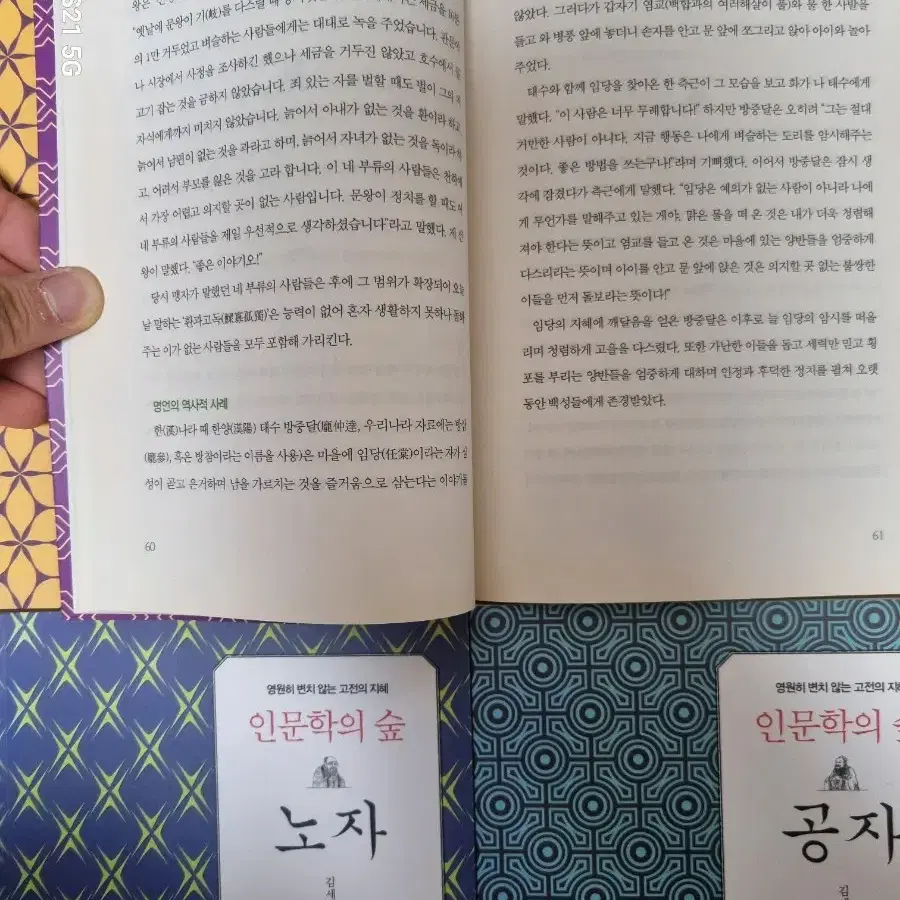 S21 5G
"옛날에 문왕이 기(岐)를 다스릴 때
의 1만 거두었고 벼슬하는 사람들에게는 대대로 녹을 주었습니다. 관문이
나 시장에서 사정을 조사하긴 했으나 세금을 거두진 않았고 호수에서
고기 잡는 것을 금하지 않았습니다. 죄 있는 자를 벌할 때도 벌이 그의 처
자식에게까지 미치지 않았습니다. 늙어서 아내가 없는 것을 환이라 하고
늙어서 남편이 없는 것을 과라고 하며, 늙어서 자녀가 없는 것을 독이라 하
고, 어려서 부모를 잃은 것을 고라 합니다. 이 네 부류의 사람들은 천하에
서 가장 어렵고 의지할 곳이 없는 사람입니다. 문왕이 정치를 할 때도
네 부류의 사람들을 제일 우선적으로 생각하셨습니다"라고 말했다. 제 선
왕이 말했다. "좋은 이야기오!"
당시 맹자가 말했던 네 부류의 사람들은 후에 그 범위가 확장되어 오늘
날 말하는 '환과고독(鰥寡孤獨)'은 능력이 없어 혼자 생활하지 못하나 돌봐
주는 이가 없는 사람들을 모두 포함해 가리킨다.
명언의 역사적 사례
한(漢)나라 때 한양(漢陽) 태수 방중달(龐仲達, 우리나라 자료에는 방삼
(龐參), 혹은 방참이라는 이름을 사용)은 마을에 임당(任棠)이라는 자가
성이 곧고 은거하며 남을 가르치는 것을 즐거움으로 삼는다는 이야기를
60
않았다. 그러다가 갑자기 염교(백합과의 여러해살이 풀)와 물 한 사발을
들고 와 병풍 앞에 놓더니 손자를 안고 문 앞에 쪼그리고 앉아 아이와 놀아
주었다.
태수와 함께 임당을 찾아온 한 측근이 그 모습을 보고 화가 나 태수에게
말했다. "이 사람은 너무 무례합니다!" 하지만 방중달은 오히려 "그는 절대
거만한 사람이 아니다. 지금 행동은 나에게 벼슬하는 도리를 암시해주는
것이다. 좋은 방법을 쓰는구나!"라며 기뻐했다. 이어서 방중달은 잠시 생
각에 잠겼다가 측근에게 말했다. "임당은 예의가 없는 사람이 아니라 나에
게 무언가를 말해주고 있는 게야. 맑은 물을 떠 온 것은 내가 더욱 청렴해
져야 한다는 뜻이고 염교를 들고 온 것은 마을에 있는 양반들을 엄중하게
다스리라는 뜻이며 아이를 안고 문 앞에 앉은 것은 의지할 곳 없는 불쌍한
이들을 먼저 돌보라는 뜻이다!"
임당의 지혜에 깨달음을 얻은 방중달은 이후로 늘 임당의 암시를 떠올
리며 청렴하게 고을을 다스렸다. 또한 가난한 이들을 돕고 세력만 믿고 횡
포를 부리는 양반들을 엄중하게 대하며 인정과 후덕한 정치를 펼쳐 오랫
동안 백성들에게 존경받았다.
61
영원히 변치 않는 고전의 지혜
인문학의 숲
노자
김세
영원히 변치 않는 고전의 지혜
인문학의 숲
공자
김